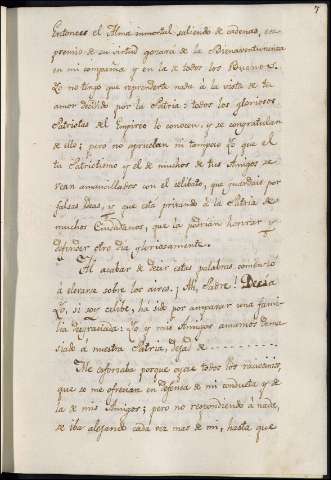 7
Entonces el Alma inmortal saliendo de cadenas, en
premio de su virtud gozará de la Bienaventuranza
en mi compañia y en la de todos los Buenos.
Yo no tengo que reprenderte nada à la vista de tu
amor decidido por la Patria: todos los gloriosos
Patriotas del Empireo lo conocen, y se congratulan
de ello; pero no aprueban ni tampoco Yo que el
tu Patriotismo y el de muchos de tus Amigos se
vean amancillados con el celibato, que guardais por
falsas Ideas, y que esta privando à la Patria de
muchos Ciudadanos, que la podrian honrar y
defender otro dia gloriosamente.
Al acabar de decir estas palabras comenzó
à elevarse sobre los aires. ¡Ah, Padre! Decia
Yo, si soy celibe, ha sido por amparar una fami-
lia desgraciada: Yo y mis Amigos amamos dema-
siado à nuestra Patria, dejad de - - - - - - - - - -
Me esforzaba porque oyese todos los raciocinios,
que se me ofrecian en defensa de mi conducta y de
la de mis Amigos; pero no respondiendo à nada,
se iba alejando cada vez mas de mi, hasta que